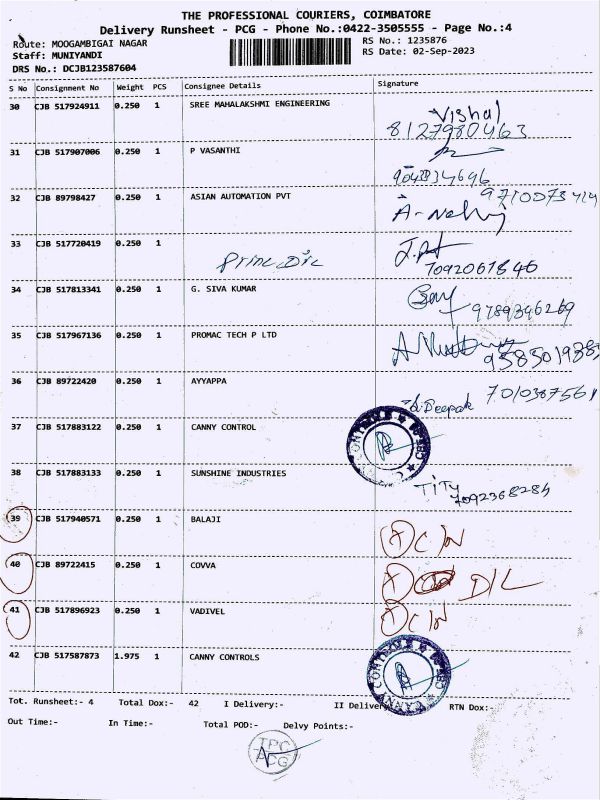 THE PROFESSIONAL COURIERS, COIMBATORE
Delivery Runsheet - PCG - Phone No.:0422-3505555 - Page No.:4
Route: MOOGAMBIGAI NAGAR
RS No.: 1235876
Staff: MUNIYANDI
RS Date: 02-Sep-2023
DRS No.: DCJB123587604
S No Consignment No Weight PCS Consignee Details Signature
30 CJB 517924911 0.250 1 SREE MAHALAKSHMI ENGINEERING
Vishal
8127980463
31 CJB 517907006 0.250 1 P VASANTHI
32 CJB 89798427 0.250 1 ASIAN AUTOMATION PVT
33 CJB 517720419 0.250 1
34 CJB 517813341 0.250 1 G. SIVA KUMAR
9789396269
35 CJB 517967136 0.250 1 PROMAC TECH P LTD
36 CJB 89722420 0.250 1 AYYAPPA
Deepak
37 CJB 517883122 0.250 1 CANNY CONTROL
38 CJB 517883133 0.250 1 SUNSHINE INDUSTRIES
7092368284
39 CJB 517940571 0.250 1 BALAJI
40 CJB 89722415 0.250 1 COVVA
D/L
41 CJB 517896923 0.250 1 VADIVEL
42 CJB 517587873 1.975 1 CANNY CONTROLS
Tot. Runsheet:- 4 Total Dox:- 42 I Delivery:- II Delivery:- RTN Dox:-
Out Time:- In Time:- Total POD:- Delvy Points:-
TPC
PCG